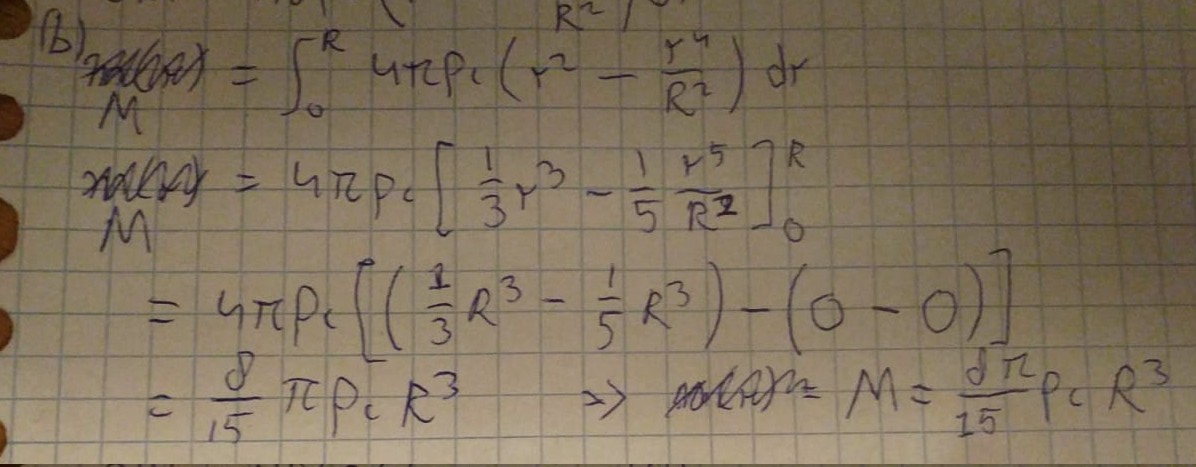 R²
(b)
M = ∫₀ᴿ 4πρc (r² − r⁴/R²) dr
M = 4πρc [1/3 r³ − 1/5 r⁵/R²]₀ᴿ
= 4πρc [(1/3 R³ − 1/5 R³) − (0 − 0)]
= 8/15 πρc R³ => M = 8π/15 ρc R³